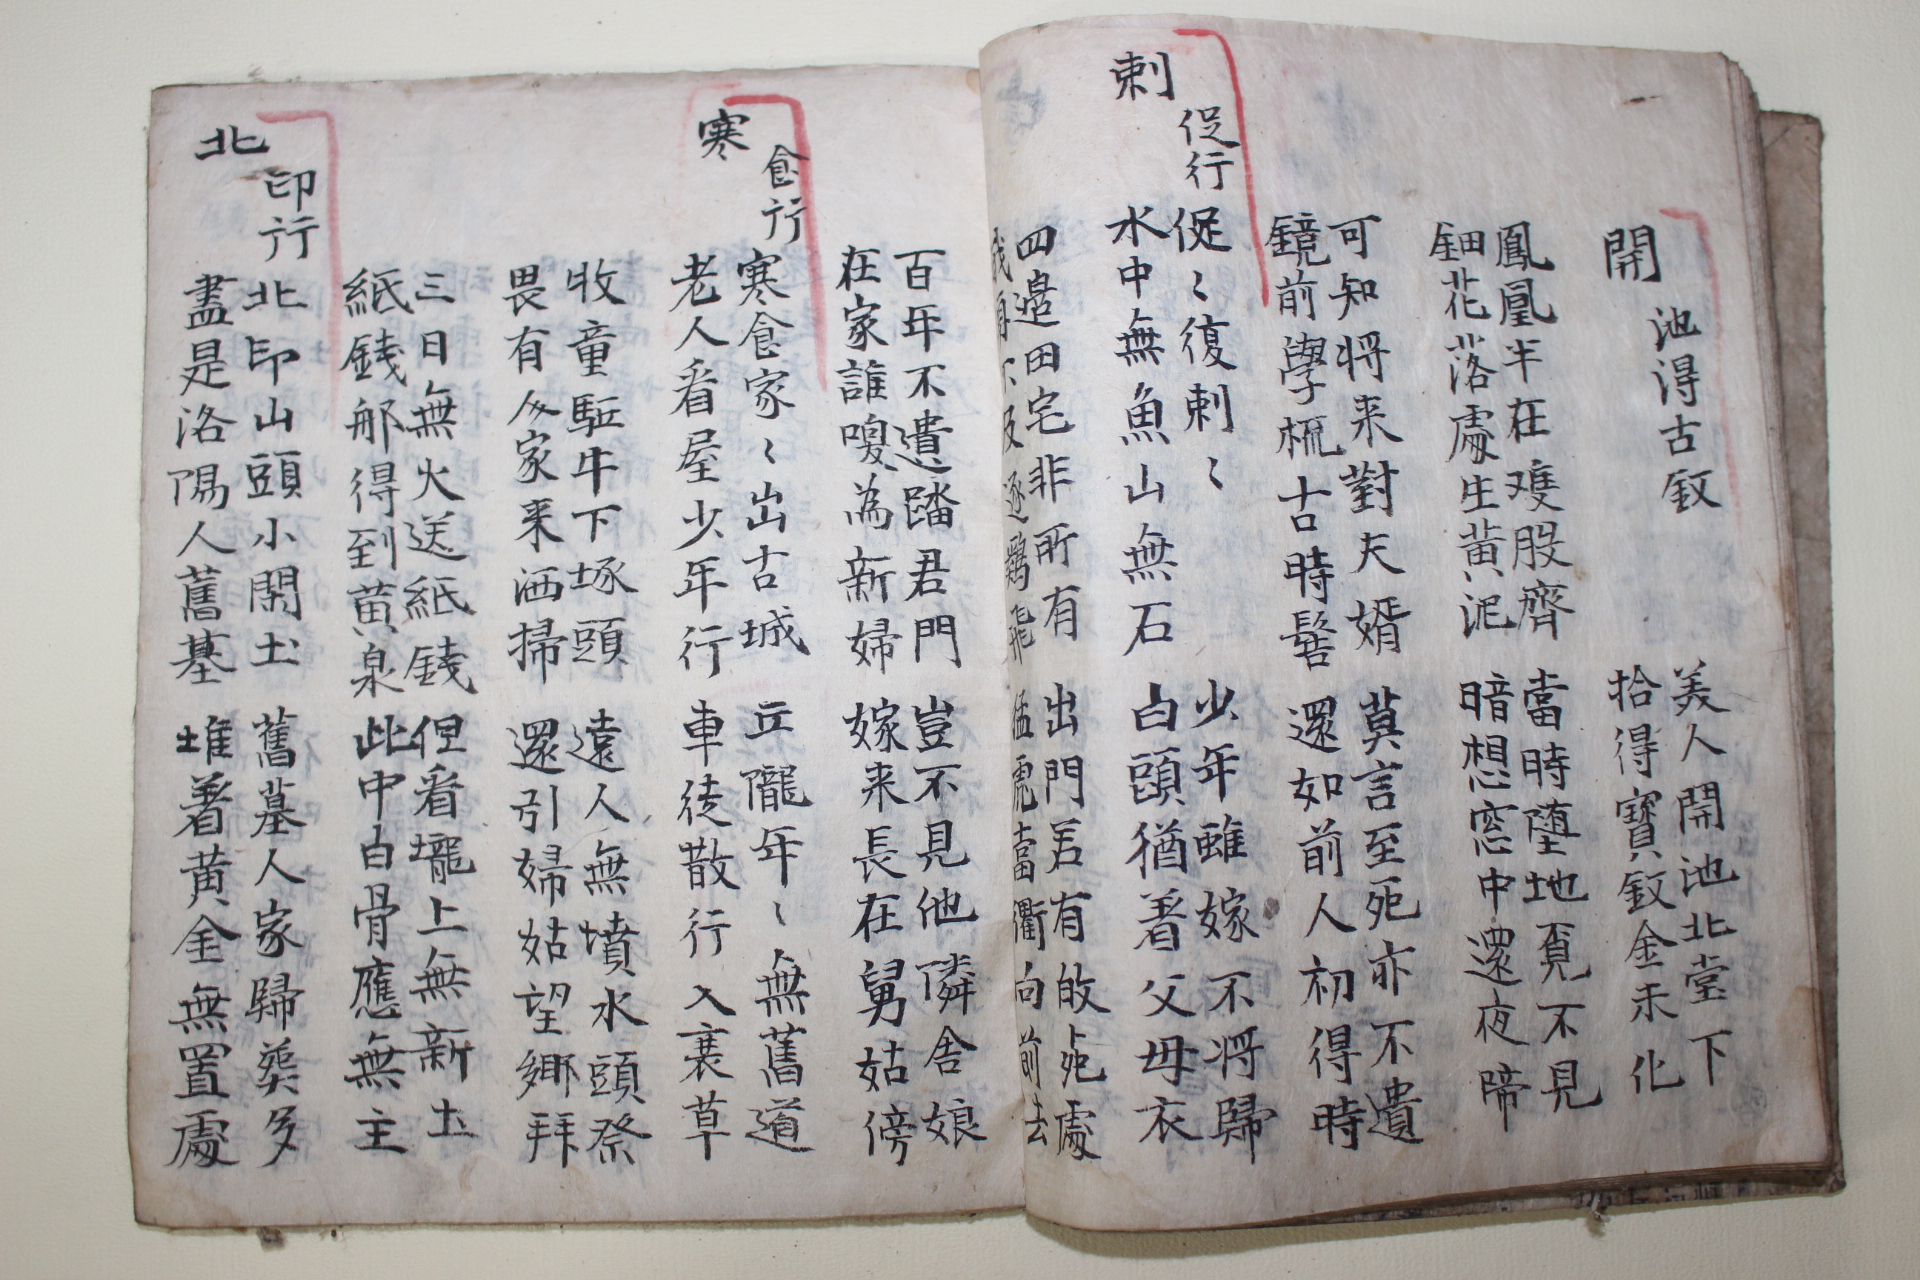 開池得古釵
美人開池北堂下
拾得寶釵金未化
鳳凰半在雙股齊
鈿花落處生黃泥
當時墮地覓不見
暗想窓中還夜啼
可知將來對夫婿
鏡前學梳古時髻
莫言至死亦不遺
還如前人初得時
刺促行
促〻復刺〻
水中無魚山無石
少年雖嫁不將歸
白頭猶著父母衣
四邊田宅非所有
我身不及逐鷄飛
出門若有敀死處
猛虎當衢向前去
百年不遣踏君門
在家誰嗅為新婦
豈不見他隣舍娘
嫁来長在舅姑傍
寒食行
寒食家〻出古城
老人看屋少年行
丘隴年〻無舊道
車徒散行入衰草
牧童駈牛下塚頭
畏有人家来洒掃
遠人無墳水頭祭
還引婦姑望鄉拜
三日無火送紙錢
紙錢那得到黃泉
但看壠上無新土
此中白骨應無主
北印行
北印山頭小閑土
盡是洛陽人舊墓
舊墓人家歸葬多
堆著黃金無置處